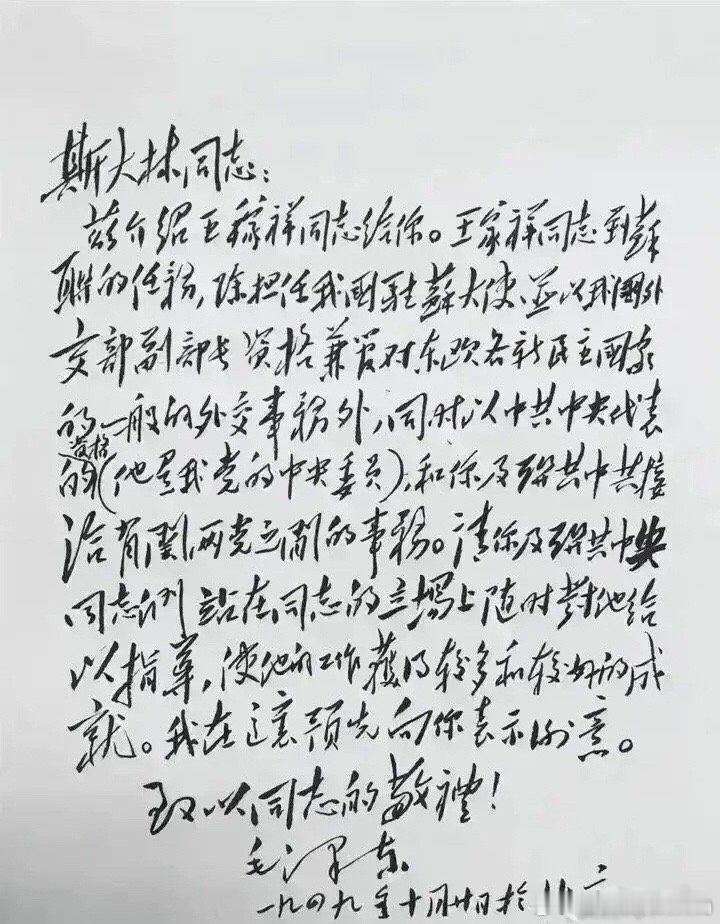 斯大林同志:
兹介绍王稼祥同志给你。王家祥同志到蘇
联的任務,除担任我國駐蘇大使、並以我國外
交部副部長资格兼管对东欧各新民主國家
的一般的外交事務外,同时以中共中央代表
资格
的(他是我党的中央委員),和你及联共中央接
洽有関两党之间的事務。請你及联共中央
同志们站在同志的立場上随时對他给
以指導,使他的工作獲得较多和较好的成
就。我在這裏预先向你表示谢意。
致以同志的敬禮!
毛泽东
一九四九年十月廿日於